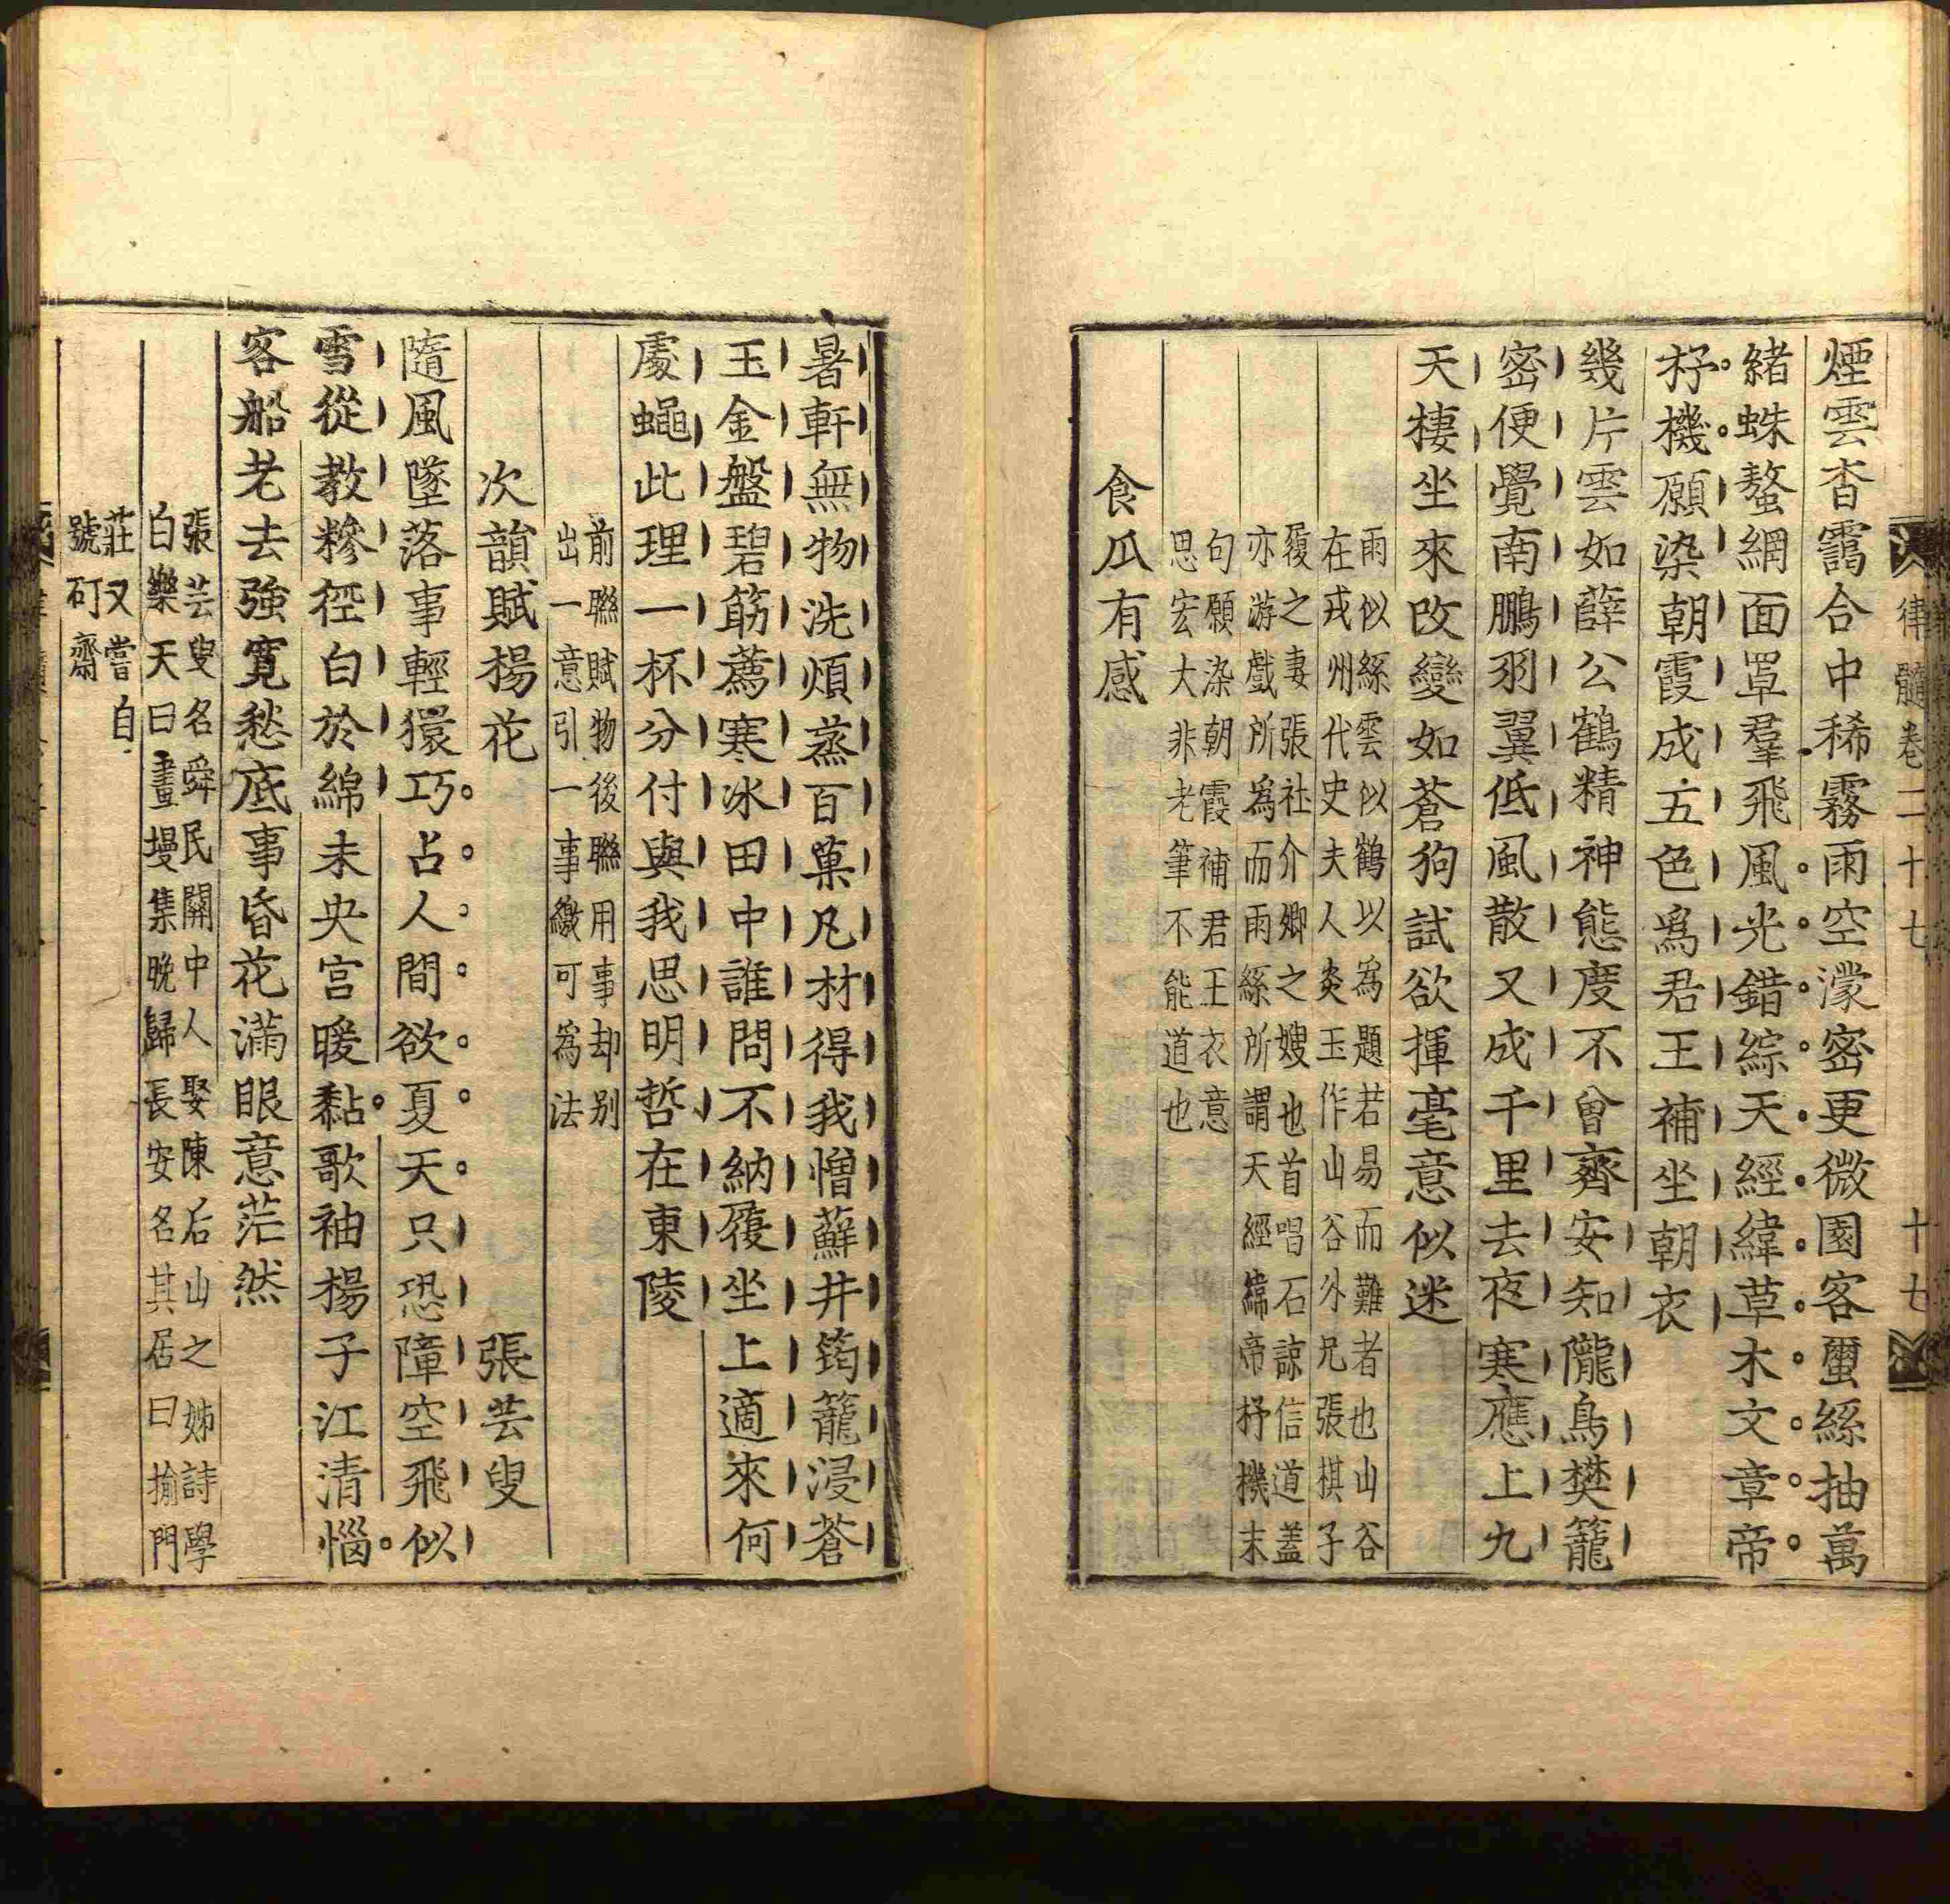 煙雲杳靄合中稀霧雨空濛密更微園客璽絲抽萬
緒蛛蝥網面罩羣飛風光錯綜天經緯草木文章帝
杼機願染朝霞成五色爲君王補坐朝衣
幾片雲如薛公鶴精神態度不曾齊安知隴鳥樊籠
密便覺南鵬羽翼低風散又成千里去夜寒應上九
天棲坐來改變如蒼狗試欲揮毫意似迷
雨似絲雲似鶴以爲題若易而難者也山谷
在戎州代史夫人炎玉作山谷外兄張祺子
履之妻張社介卿之嫂也首唱石諒信道蓋
亦游戲所爲而雨絲所謂天經緯帝杼機末
句願染朝霞補君王衣意
思宏大非老筆不能道也
食瓜有感
律髓卷二十七
十七
暑軒無物洗煩蒸百菓凡材得我憎蘚井筠籠浸蒼
玉金盤碧筯薦寒冰田中誰問不納履坐上適來何
處蠅此理一杯分付與我思明哲在東陵
前聯賦物後聯用事却别
出一意引一事繳可為法
次韻賦楊花
張芸叟
隨風墜落事輕獧巧占人間欲夏天只恐障空飛似
雪從教糝徑白於綿未央宫暖黏歌袖楊子江清惱
客船老去強寬愁底事昏花滿眼意茫然
張芸叟名舜民關中人娶陳后山之姊詩學
白樂天曰畫墁集晚歸長安名其居曰揄門
莊又嘗自
號矴齋